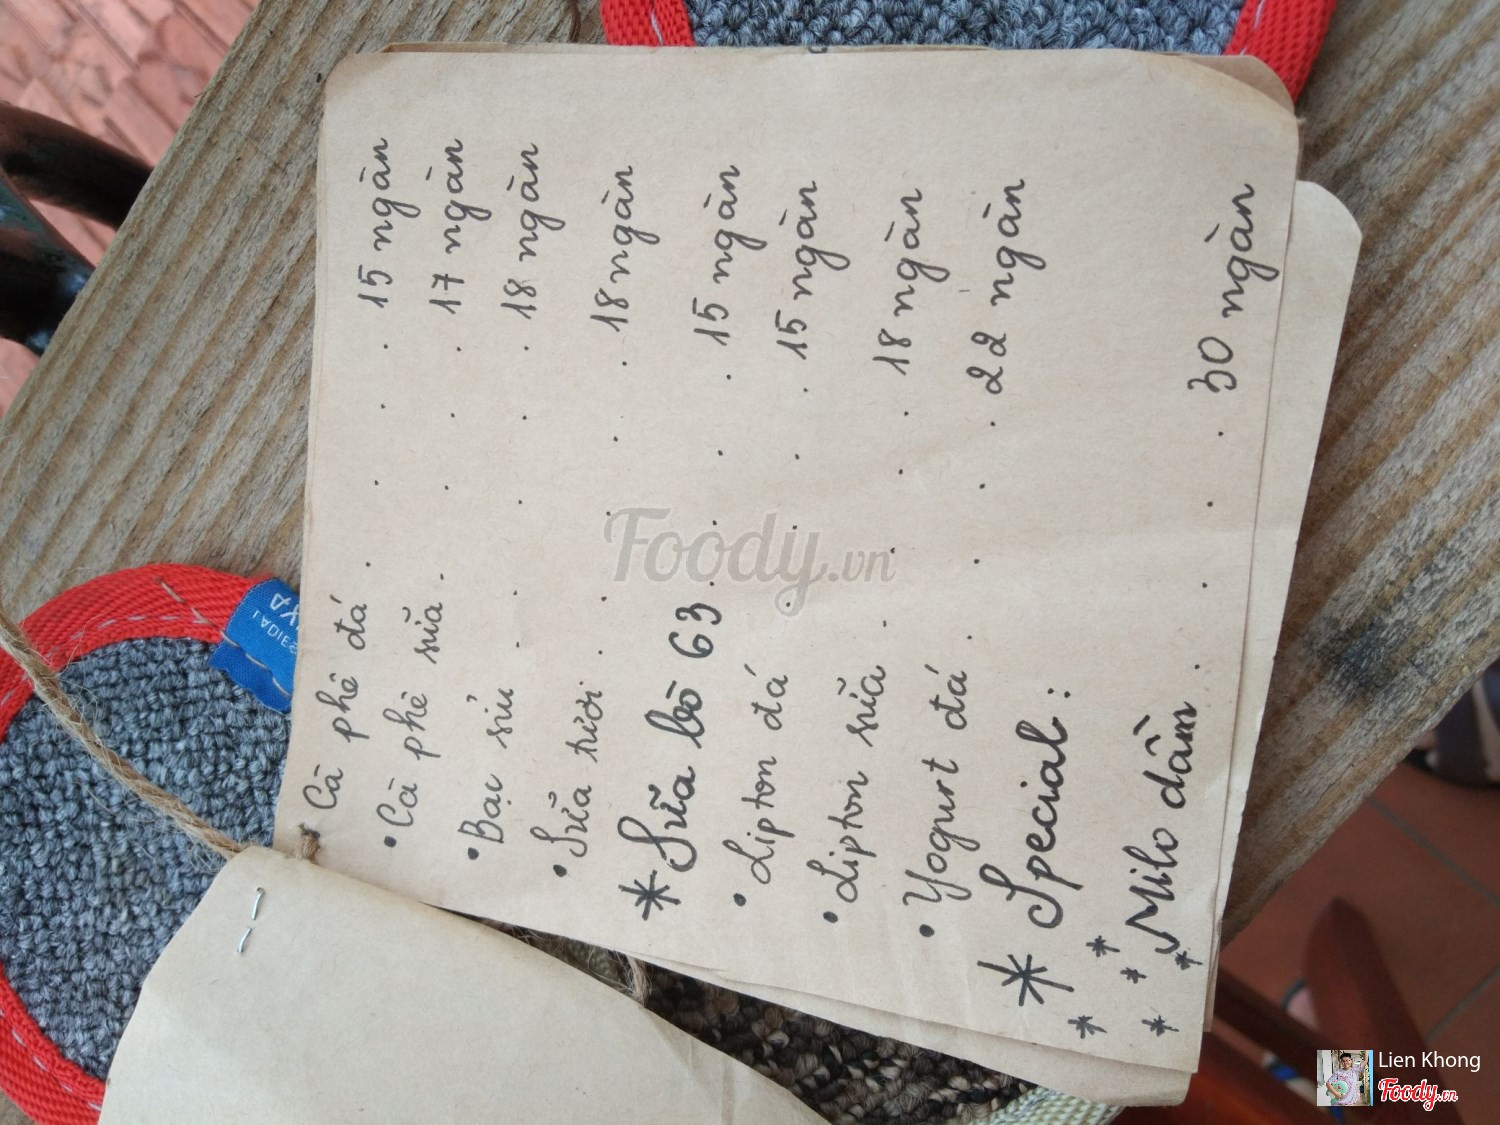 Cà phê đá . . . . 15 ngàn
• Cà phê sữa . . . . 17 ngàn
• Bạc sỉu . . . . 18 ngàn
• Sữa tươi . . . . 18 ngàn
* Sữa bò 63 . . . . 15 ngàn
• Lipton đá . . . . 15 ngàn
• Lipton sữa . . . . 18 ngàn
• Yogurt đá . . . . 22 ngàn
* Special :
Milo dầm . . . . 30 ngàn
Foody.vn
Lien Khong
Foody.vn